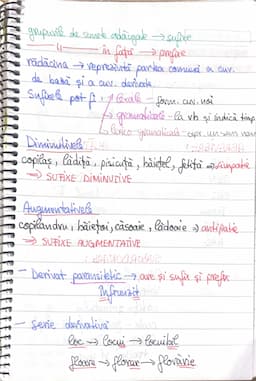 grupurile de sunete adăugate → sufixe
—— 11 —— în față → prefixe
rădăcina → reprezintă partea comună a cuv.
de bază și a cuv. derivate
Sufixele pot fi: lexicale - form. cuv. noi
gramaticale - la vb și indică timp
lexico gramaticale
Diminutivele
copilaș, lădiță, pisicuță, băiețel, fetiță → simpatie
→ SUFIXE DIMINUTIVE
Augmentativele
copilandru, băiețoi, căsoaie, lădoaie → antipatie
→ SUFIXE AUGMENTATIVE
- Derivat parasintetic → are și sufix și prefix
înfrunzit
- serie derivativă
loc → locui → locuibil
floare → florar → florărie